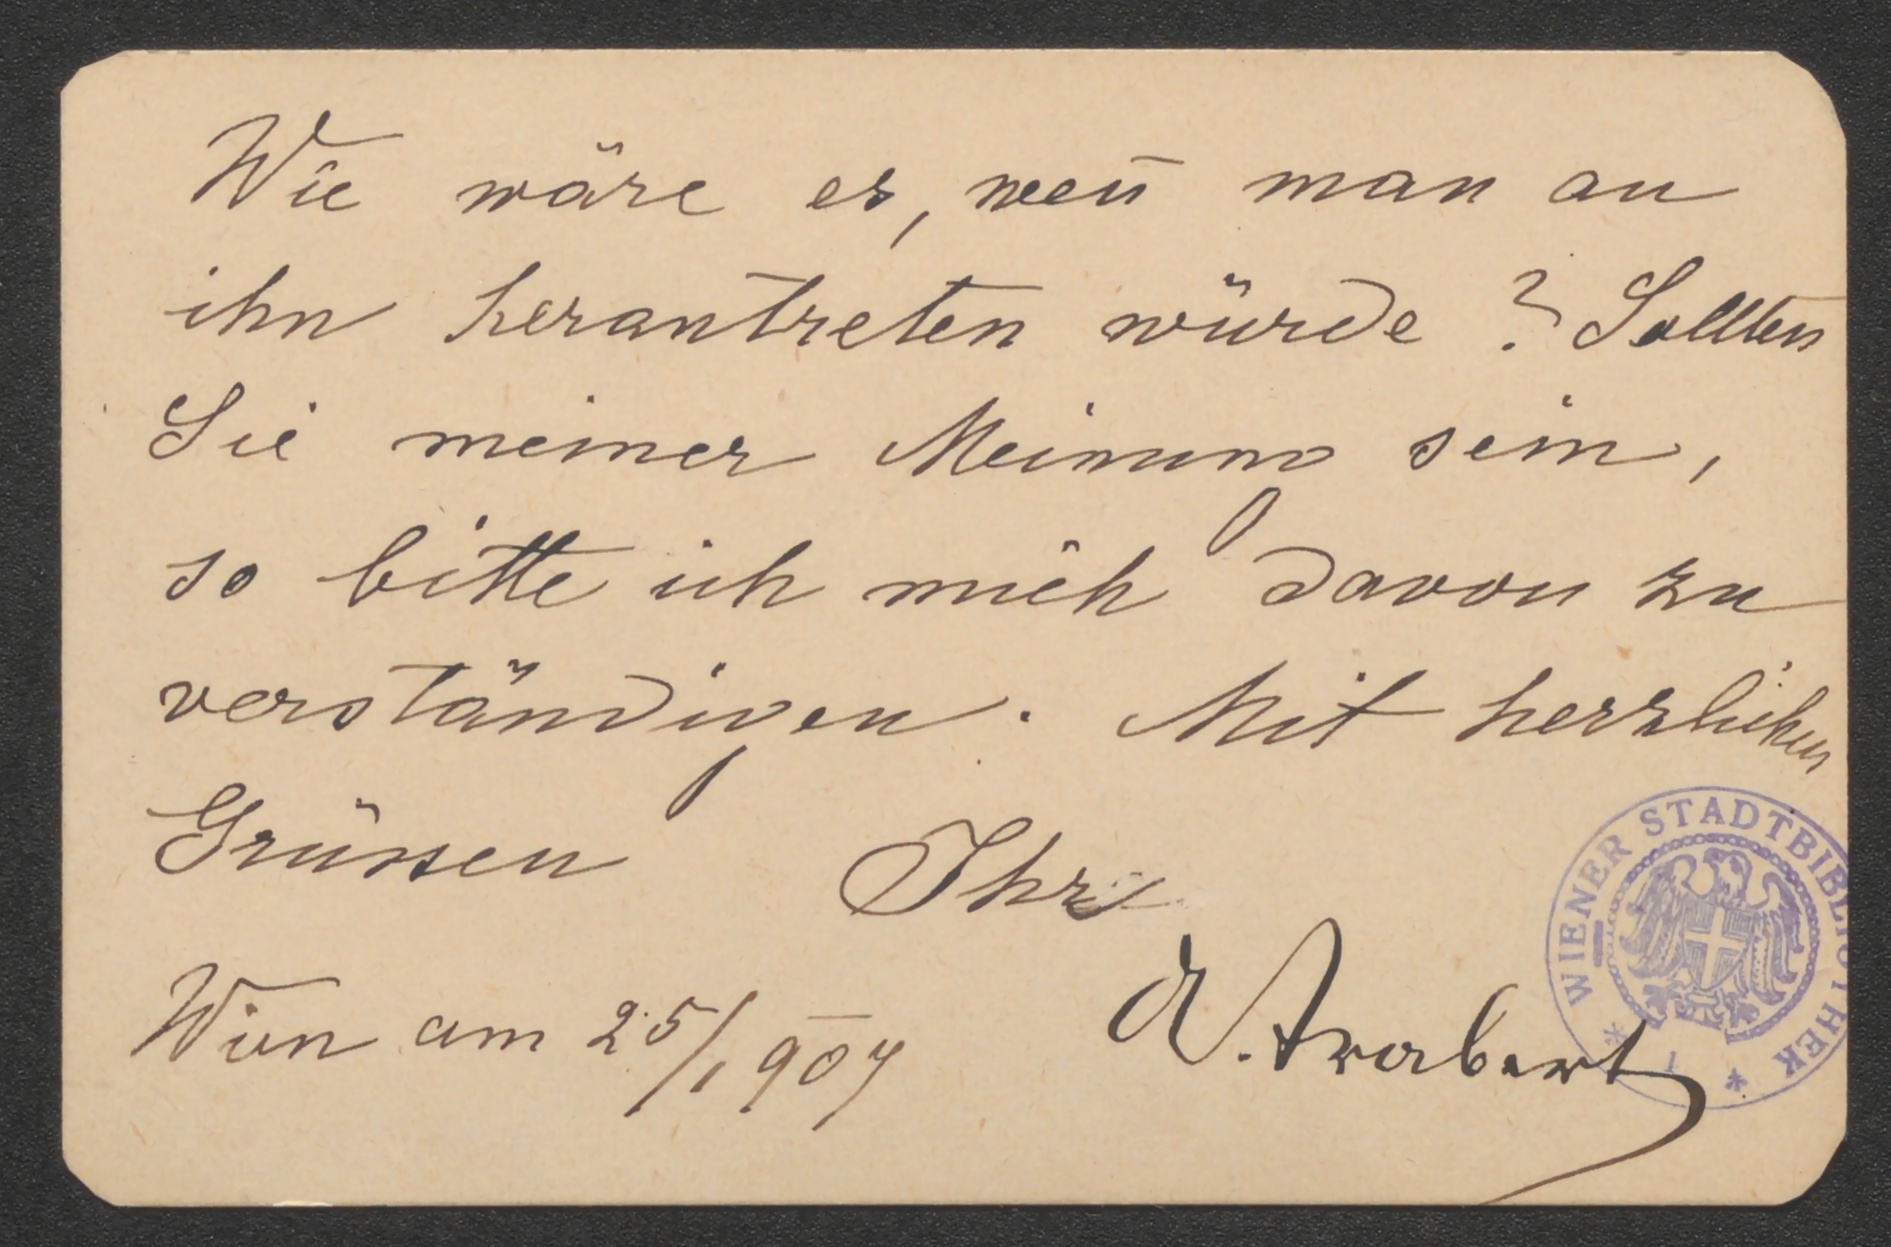 Wie wäre es, weñ man an
ihn herantreten würde? Sollten
Sie meiner Meinung sein,
so bitte ich mich davon zu
verständigen. Mit herzlichen
Grüssen Ihr
A. Trabert
Wien am 25/1 907
WIENER STADTBIBLIOTHEK
* 1 *